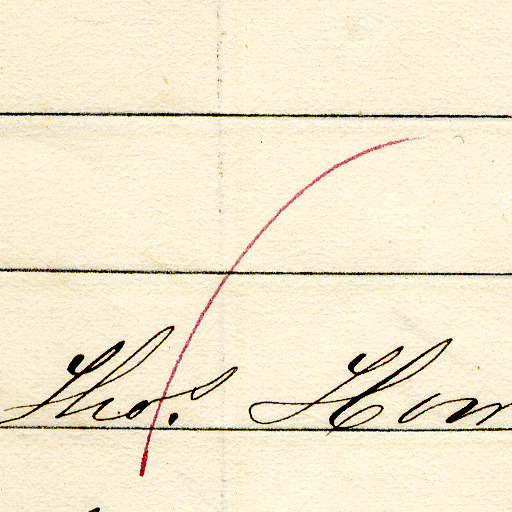 Thos. Hom